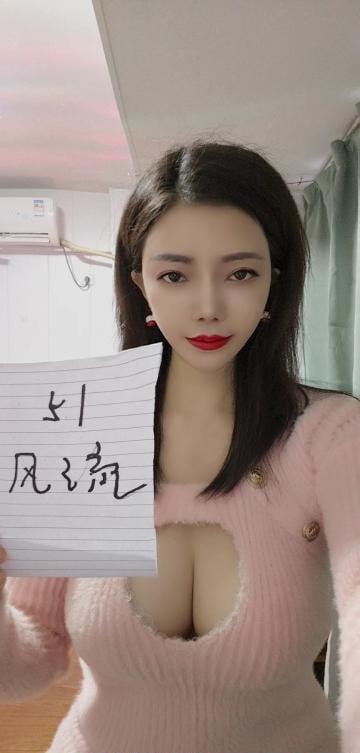 51
风流